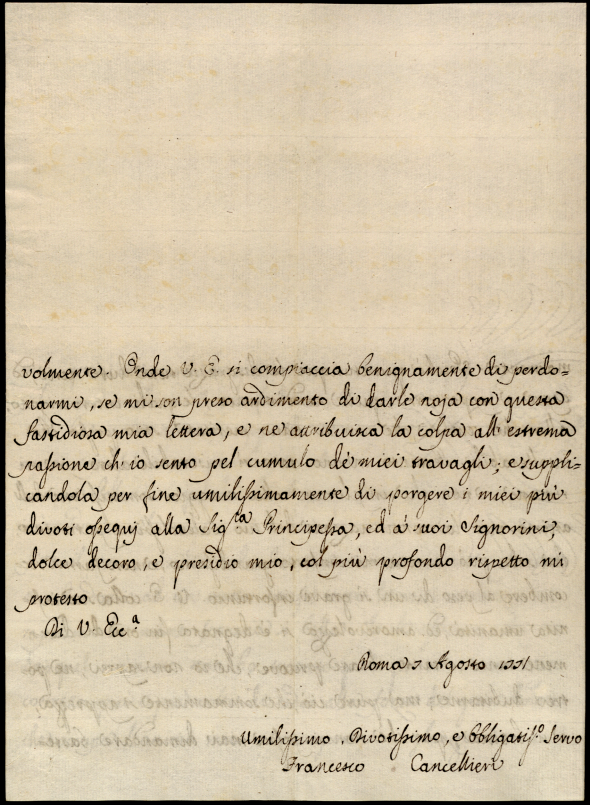 volmente. Onde V. E. si compiaccia benignamente di perdo=
narmi, se mi son preso ardimento di darle noja con questa
fastidiosa mia lettera, e ne attribuisca la colpa all' estrema
passione ch' io sento pel cumulo de' miei travagli; e suppli=
candola per fine umilissimamente di porgere i miei più
divoti ossequj alla Sig.ra Principessa, ed a' suoi Signorini,
dolce decoro, e presidio mio, col più profondo rispetto mi
protesto
Di V. Ecc.a
Roma Agosto
Umilissimo, Divotissimo, e Obbligatiss.o Servo
Francesco Cancellieri